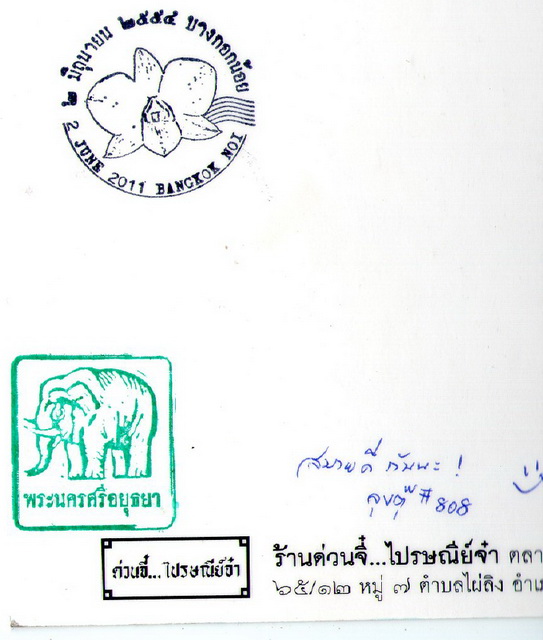 ๒ มิถุนายน ๒๕๕๔ บางกอกน้อย
2 JUNE 2011 BANGKOK NOI
พระนครศรีอยุธยา
สบายดี กันนะ !
ลุงตู้ #808
ด่วนจี๋...ไปรษณีย์จ๋า
ร้านด่วนจี๋...ไปรษณีย์จ๋า ตลา
๖๕/๑๒ หมู่ ๗ ตำบลไผ่ลิง อำเ